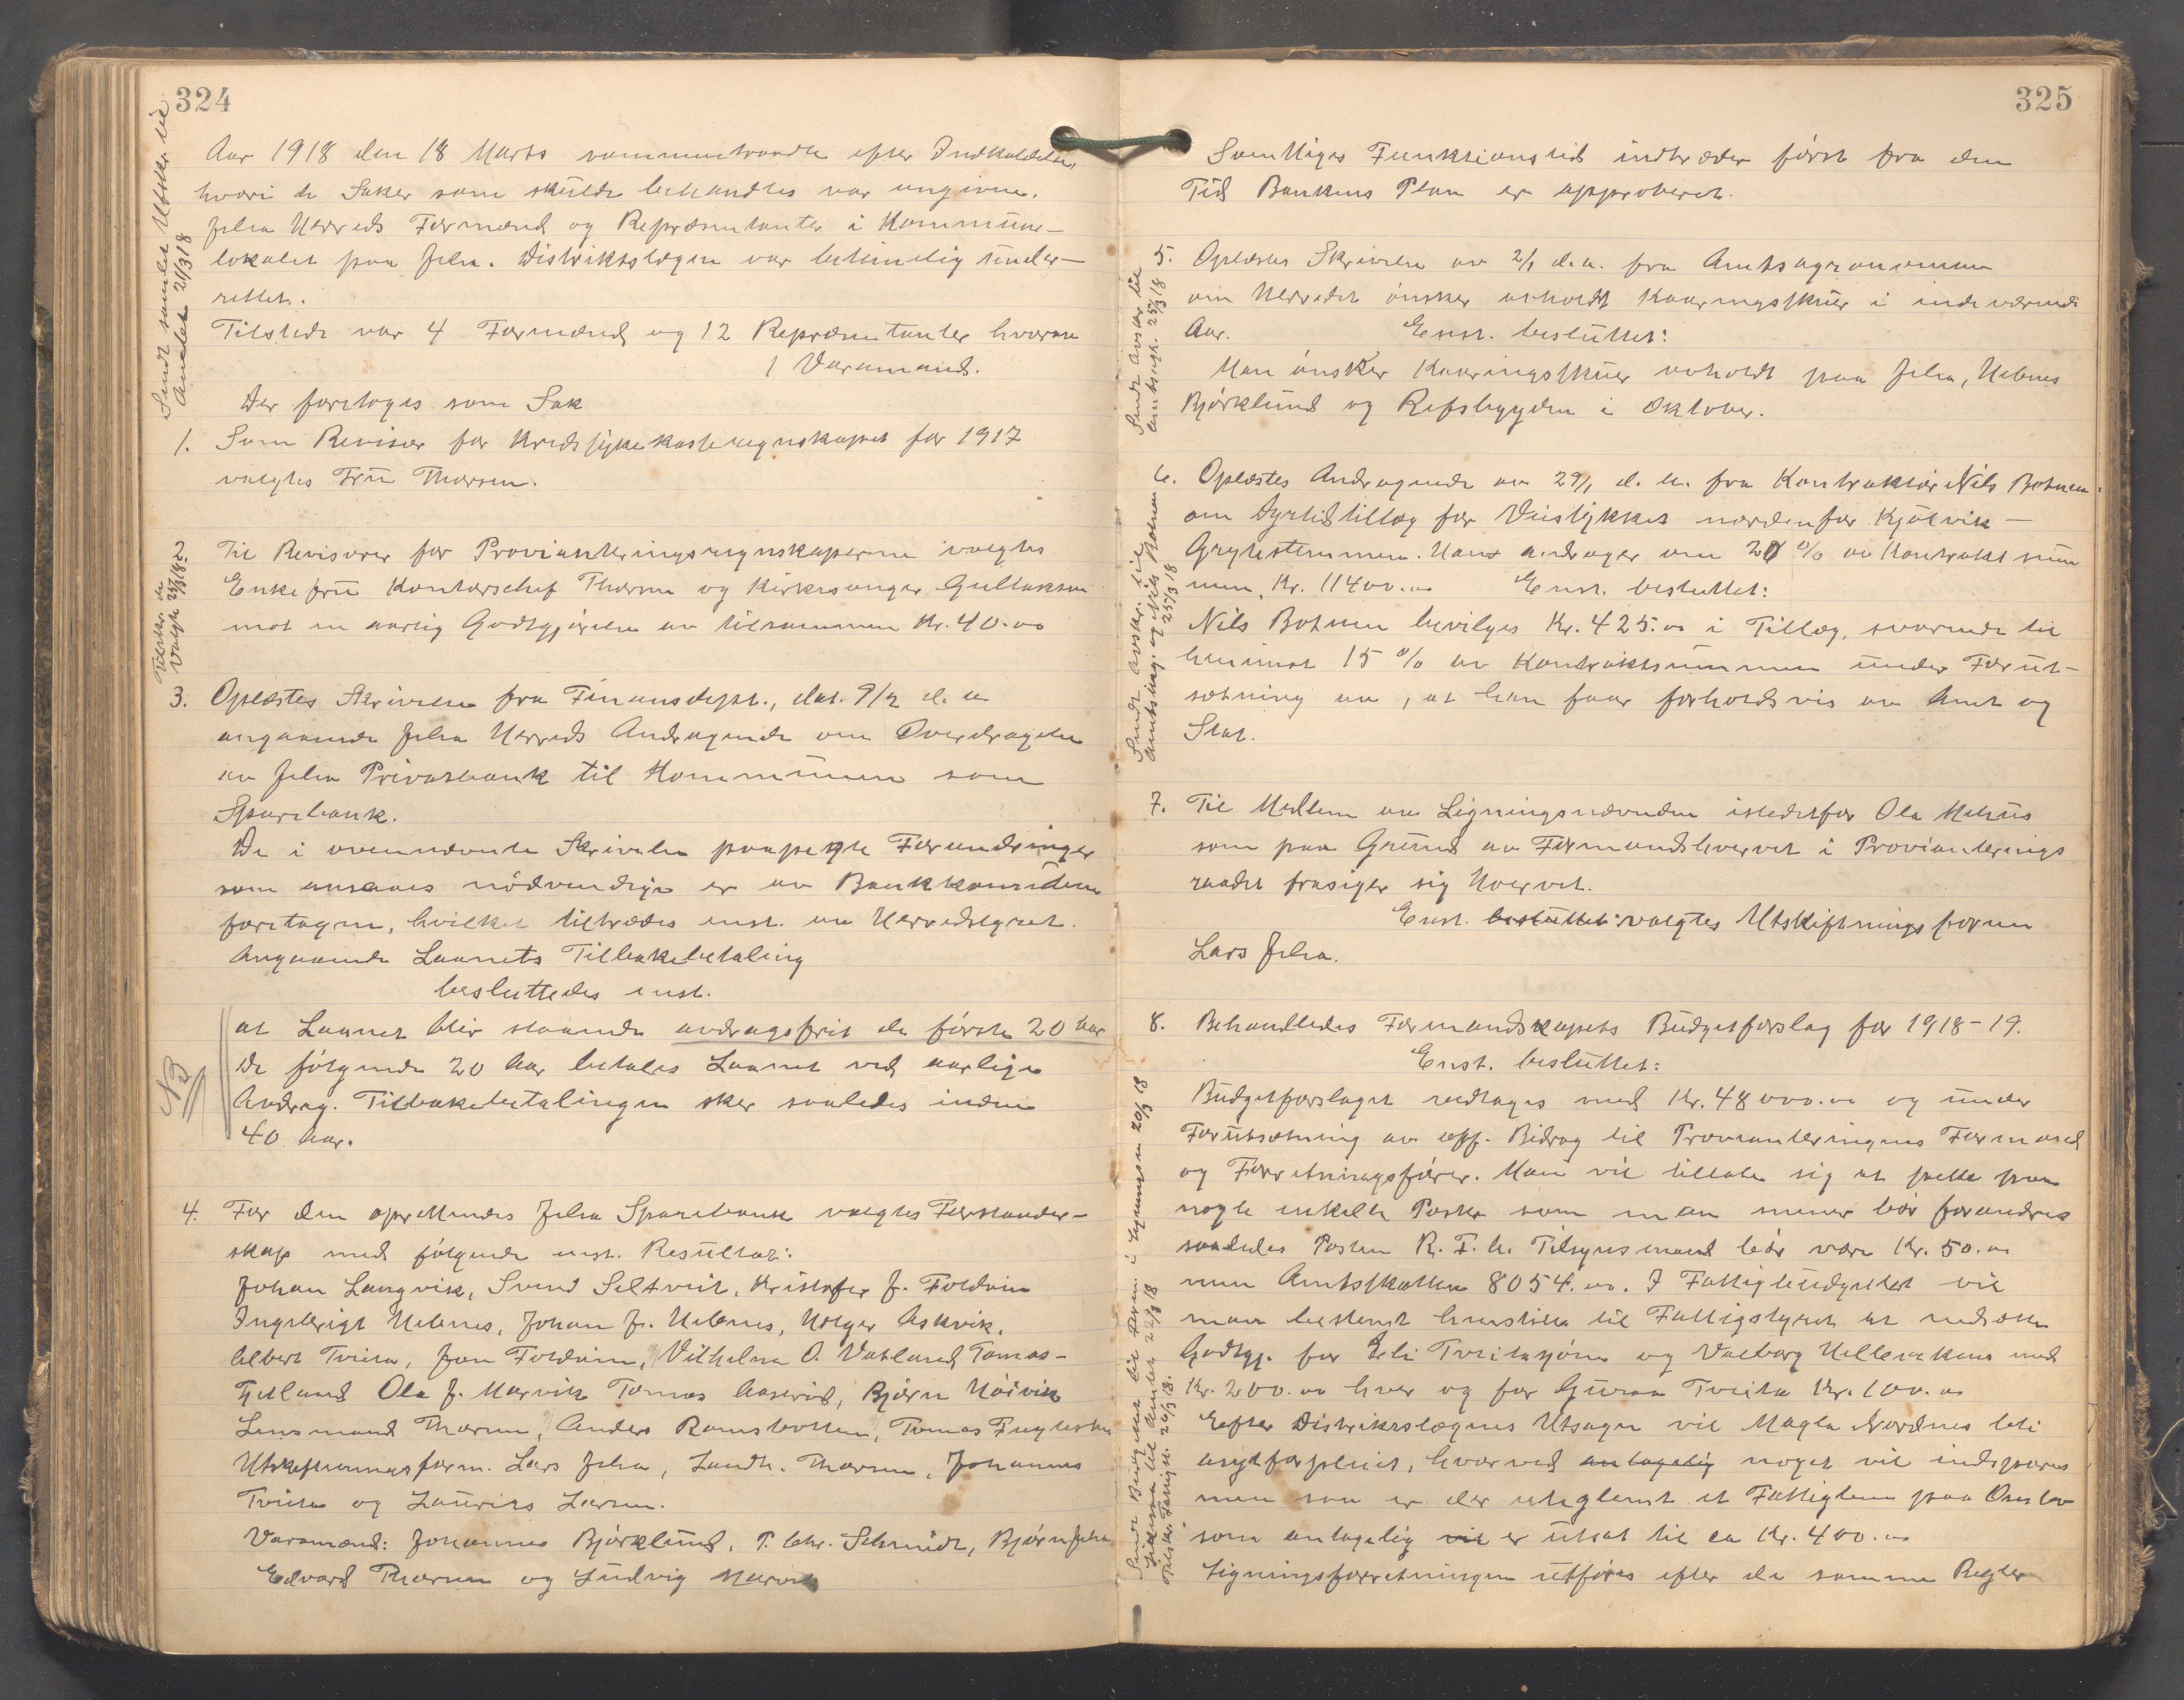 324
Sendt samlet Utskr. til
Amtet 21/3 18
Aar 1918 den 18 Marts sammentraadte efter Indkaldelse,
hvori de Saker som skulde behandles var angivne,
Jelsa Herreds Formænd og Repræsentanter i Kommune-
lokalet paa Jelsa. Distriktslægen var betimelig under-
rettet.
Tilstede var 4 Formænd og 12 Repræsentanter hvorav
1 Varamand.
Der foretoges som Sak
1. Som Revisor for Kredssykekasseregnskapet for 1917
valgtes Fru Thorsen.
2. Til Revisorer for Provianteringsregnskaperne valgtes
Enkefru Kontorchef Thorsen og Kirkesanger Gullaksen
mot en aarlig Godtgjørelse av tilsammen Kr. 40.00
Utskr. de
valgte 25/3 18
3. Oplæstes Skrivelse fra Finansdept., dat. 9/2 d. a
angaaende Jelsa Herreds Andragende om Overdragelse
av Jelsa Privatbank til Kommunen som
Sparebank.
De i ovennævnte Skrivelse paapegte Forandringer
som ansaaes nødvendige er av Bankkomiteen
foretagen, hvilket tiltrædes enst. av Herredstyret.
Angaaende Laanets Tilbakebetaling
besluttedes enst.
NB
at Laanet blir staaende avdragsfrit de første 20 Aar
De følgende 20 Aar betales Laanet ved aarlige
Avdrag. Tilbakebetalingen sker saaledes inden
40 Aar.
4. For den oprettendes Jelsa Sparebank valgtes Forstander-
skap med følgende enst. Resultat:
Johan Langvik, Svend Seltveit, Kristofer J. Foldøin
Ingebrigt Hebnes, Johan J. Hebnes, Holger Askvik,
Albert Tveita, Jon Foldøin, Vilhelm O. Vatland, Tomas
Tjelland Ola J. Marvik Tomas Aaserød, Bjørn Høivik
Lensmand Thorsen, Anders Ramsbotten, Tomas
Utskiftningsform. Lars Jelsa, Landh. Thorsen, Johannes
Tveita og Laurits Larsen.
Varamænd: Johannes Bjørklund, P. Chr. Schmidt, Bjørn Jelsa
Edvard Thorsen og Ludvig Marvik
325
Samtliges Funktionstid indtræder først fra den
Tid Bankens Plan er approberet.
Sendt avskr. til
Amtsagr. 25/3 18
5. Oplæstes Skrivelse av 2/1 d.a. fra Amtsagronomen
om Herredet ønsker avholdt Kaaringsskuer i indeværende
Aar. Enst. besluttet:
Man ønsker Kaaringsskuer avholdt paa Jelsa, Hebnes
Bjørklund og Refsbygden i Oktober.
Sendt avskr. til
Amtsing. og Nils Botnen
25/3 18
6. Oplæstes Andragende av 29/1 d. a. fra Kontraktør Nils Botnen
om Dyrtidstillæg for Veistykket nordenfor Kjølvik -
Grytestemmen. Han andrager om 20 % av Kontraktsum
men, Kr. 11400.00 Enst. besluttet:
Nils Botnen bevilges Kr. 425.00 i Tillæg, svarende til
henimot 15 % av Kontraktsummen under Forut-
sætning av, at han faar forholdsvis av Amt og
Stat.
7. Til Medlem av Ligningsnævnden istedetfor Ola Mehus
som paa Grund av Formandshvervet i Provianterings
raadet frasiger sig Hvervet.
Enst. besluttet: valgtes Utskiftningsform
Lars Jelsa.
8. Behandledes Formandskapets Budgetforslag for 1918-19.
Enst. besluttet:
Budgetforslaget vedtages med Kr. 48000.00 og under
Forutsætning av off. Bidrag til Provianteringens Formand
og Forretningsfører. Man vil tillate sig at pette paa
nogle enkelte Poster som man mener bør forandres
saaledes Posten R. F. A. Tilsynsmand bør være Kr. 50.00
men Amtsskatten 8054.00. I Fattigbudgettet vil
man bestemt henstille til Fattigstyret at nedsætte
Godtgj. for Eli Tveitasjøen og Valborg med
Kr. 200.00 hver og for Guroa Tveita Kr. 100.00
Efter Distriktslægens Utsagn vil Magla Nordnes bli
asylforpleiet, hvorved antagelig noget vil indspares
men saa er der uteglemt et Fattiglem paa
som antagelig vil er utsat til ca Kr. 400.00
Ligningsforretningen utføres efter de samme Regler